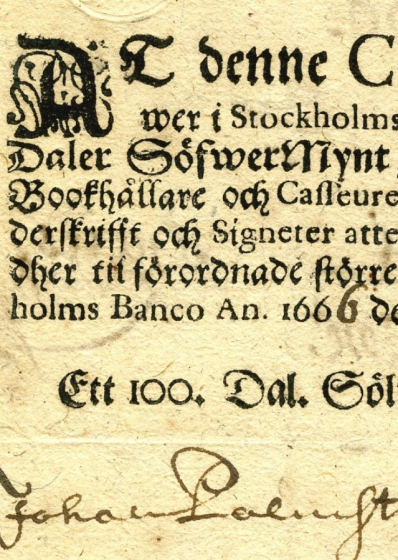 AT denne C
wer i Stockholms
Daler SöfwerMynt
Bookhållare och Casseure
derskrifft och Signeter atte
dher til förordnade större
holms Banco An. 1666 de
Ett 100. Dal. Söl
Johan Palmst